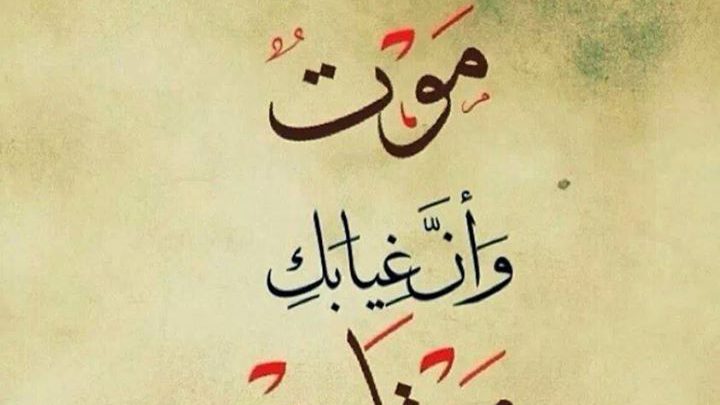 مَوْتٌ
وَأنَّ غِيابَكِ